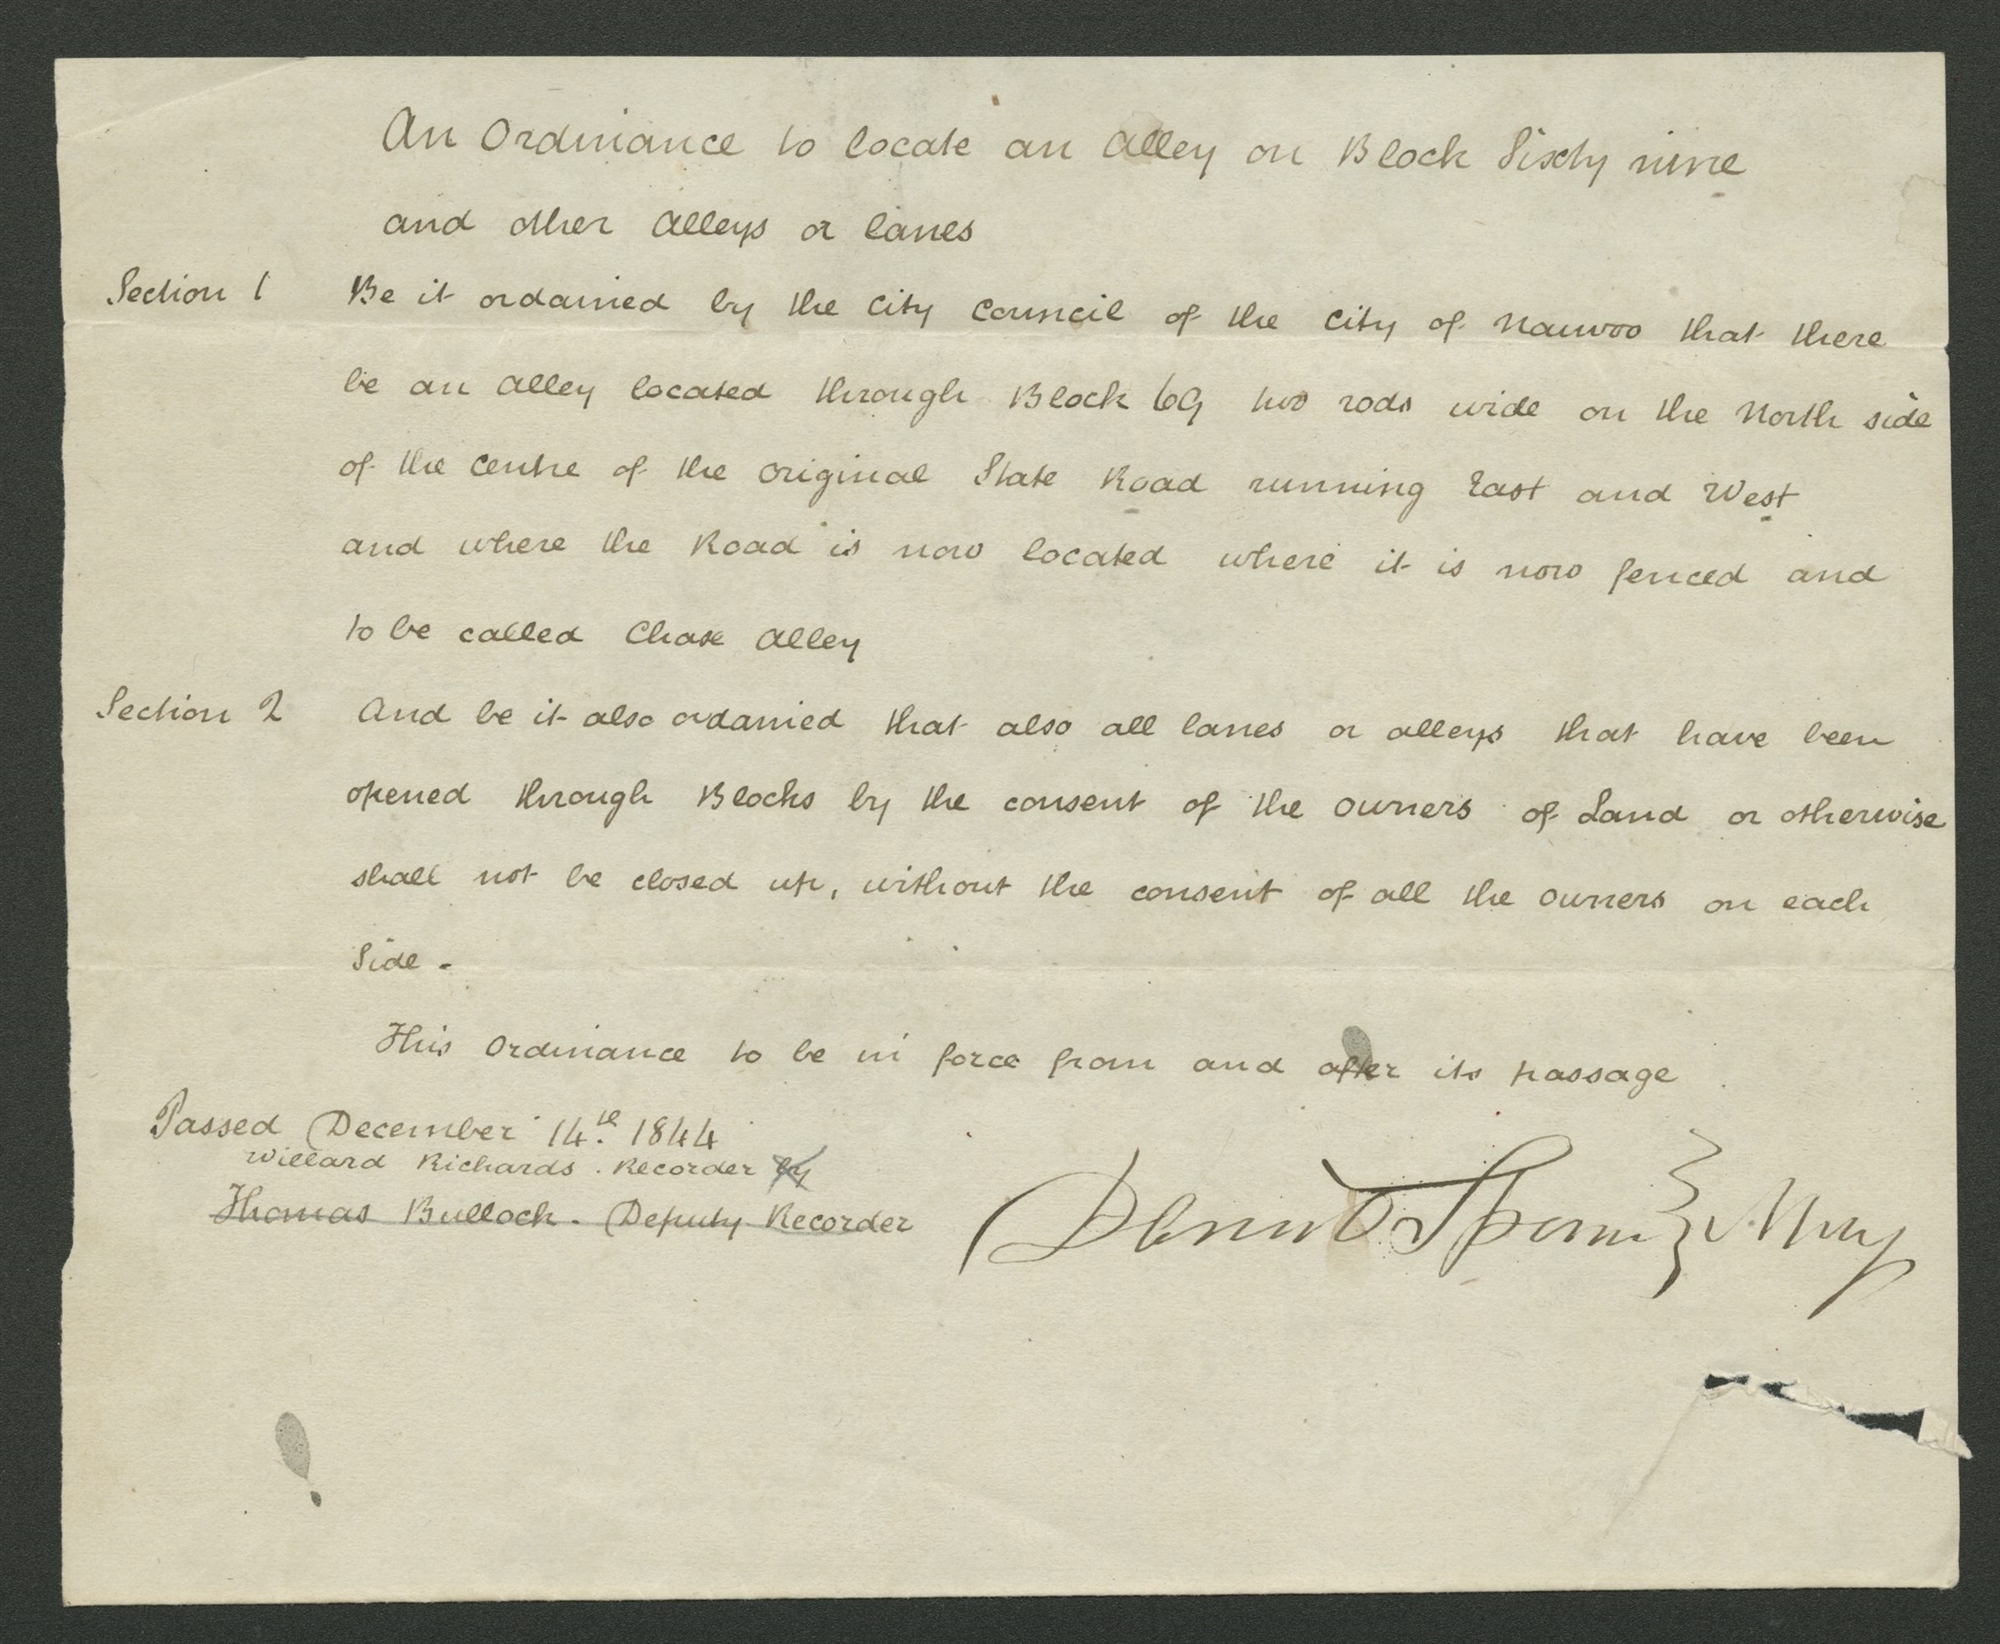 An Ordinance to locate an Alley on Block Sixty nine
and other Alleys or lanes
Section 1 Be it ordained by the City Council of the City of Nauvoo that there
be an Alley located through Block 69 two rods wide on the North side
of the Centre of the original State Road running East and West
and where the Road is now located where it is now fenced and
to be called Chase Alley
Section 2 And be it also ordained that also all lanes or alleys that have been
opened through Blocks by the consent of the owners of Land or otherwise
shall not be closed up, without the consent of all the owners on each
Side -
This Ordinance to be in force from and after its passage
Passed December 14th. 1844
Willard Richards. Recorder by
Thomas Bullock. Deputy Recorder
Daniel Spencer Mayor